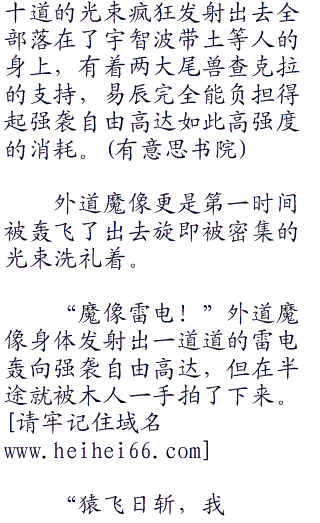 十道的光束疯狂发射出去全
部落在了宇智波带土等人的
身上，有着两大尾兽查克拉
的支持，易辰完全能负担得
起强袭自由高达如此高强度
的消耗。(有意思书院)
外道魔像更是第一时间
被轰飞了出去旋即被密集的
光束洗礼着。
“魔像雷电！”外道魔
像身体发射出一道道的雷电
轰向强袭自由高达，但在半
途就被木人一手拍了下来。
[请牢记住域名
www.heihei66.com]
“猿飞日斩，我